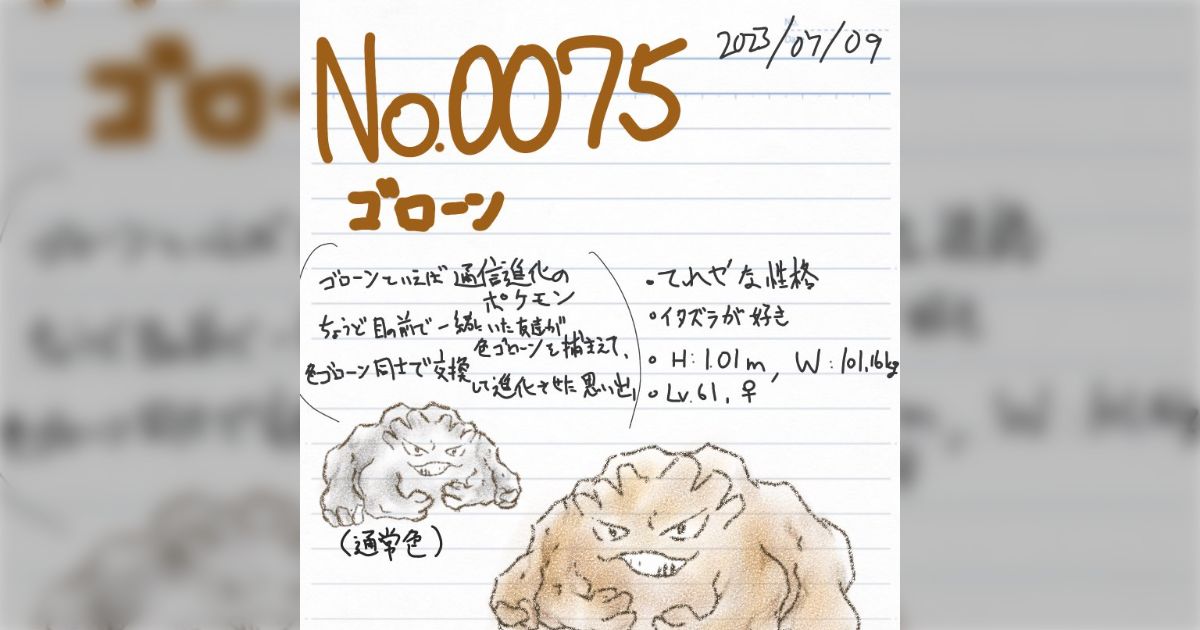 2023/07/09
No.0075
ゴローン
ゴローンといえば通信進化の
ポケモン
ちょうど目の前で一緒にいた友達が
色ゴローンを捕まえて、
色ゴローン同士で交換
して進化させた思い出
・てれやな性格
・イタズラが好き
・H:1.01m, W:101.16kg
・Lv.61, ♀
(通常色)